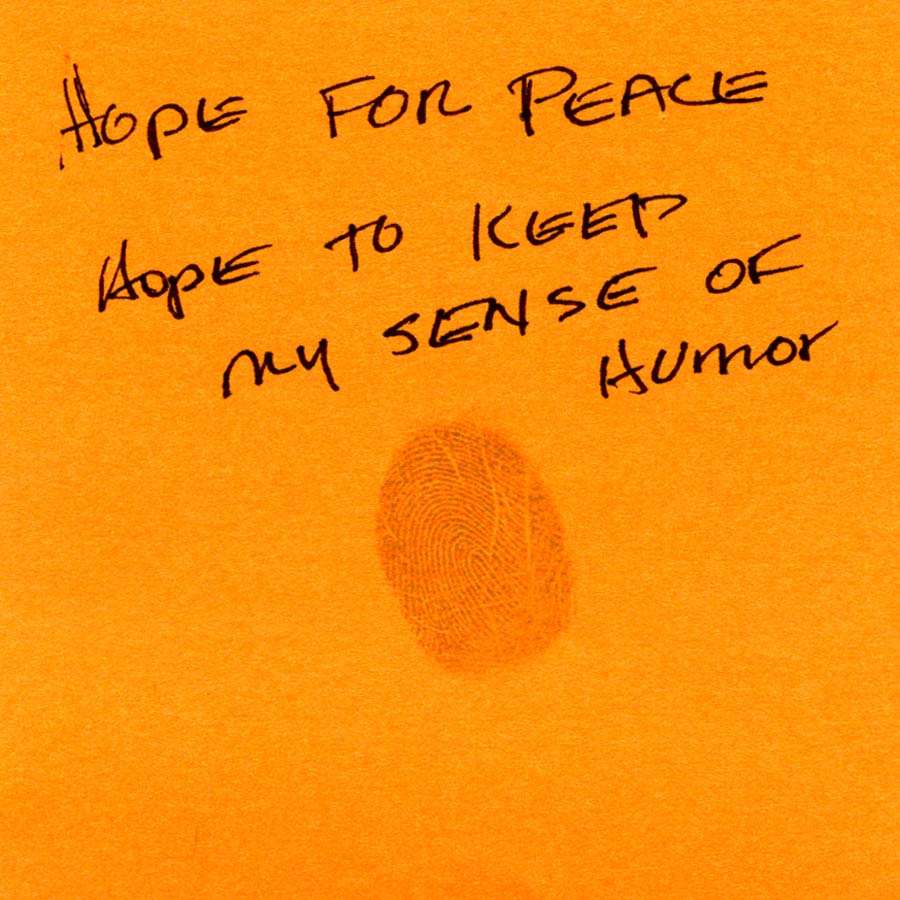 HOPE FOR PEACE
HOPE TO KEEP
MY SENSE OF
HUMOR